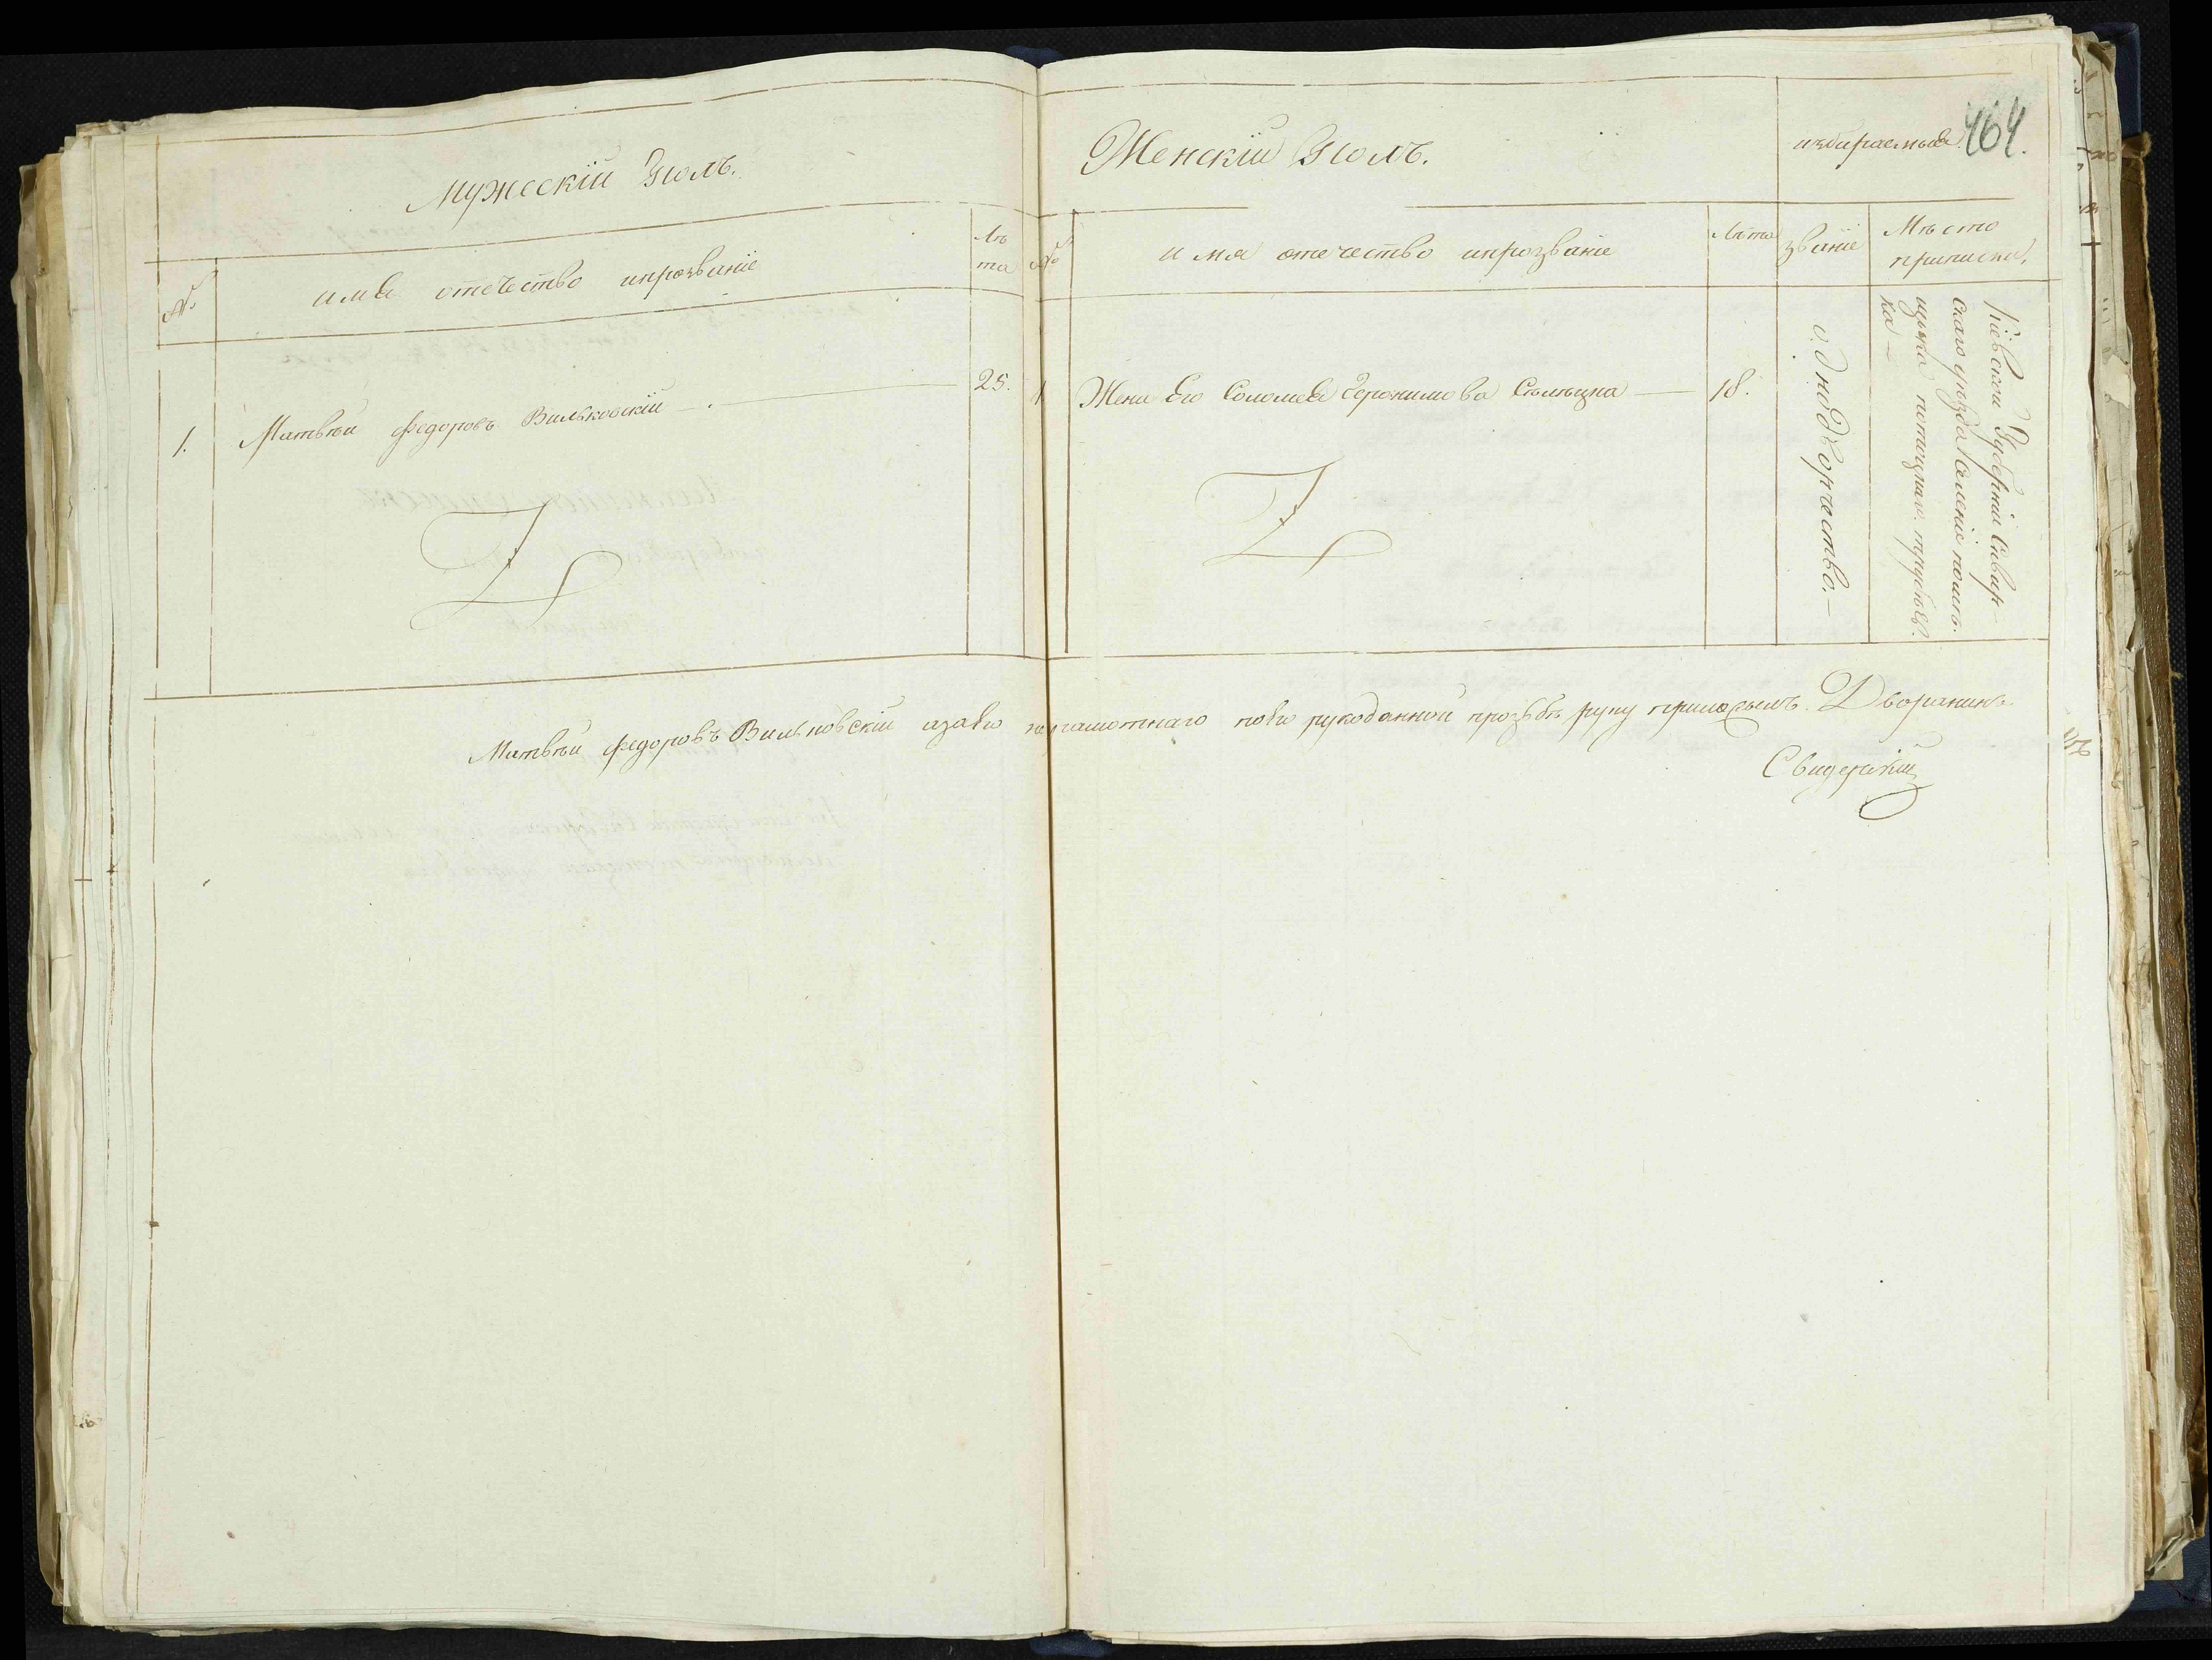 Мужескій Полъ.
№
имя отечество ипрозваніе
Лѣ
та
1.
Матвѣи Федоровъ Вильковскій
25.
Женскій Полъ.
избираемыя
464.
№
имя отечество ипрозваніе
Лѣта
званіе
Мѣсто
приписки.
1
Жена Его Соломея Геронимова
18.
Однодворчество.
Кіевской Губерніи Сквир-
скаго уѣзда Селеніе помѣ.
щика
ка
Матвѣи Федоровъ Вильковскій азаего неграмотнаго поего рукоданной прозьбѣ руку приложилъ. Дворянинъ
Свидерскій